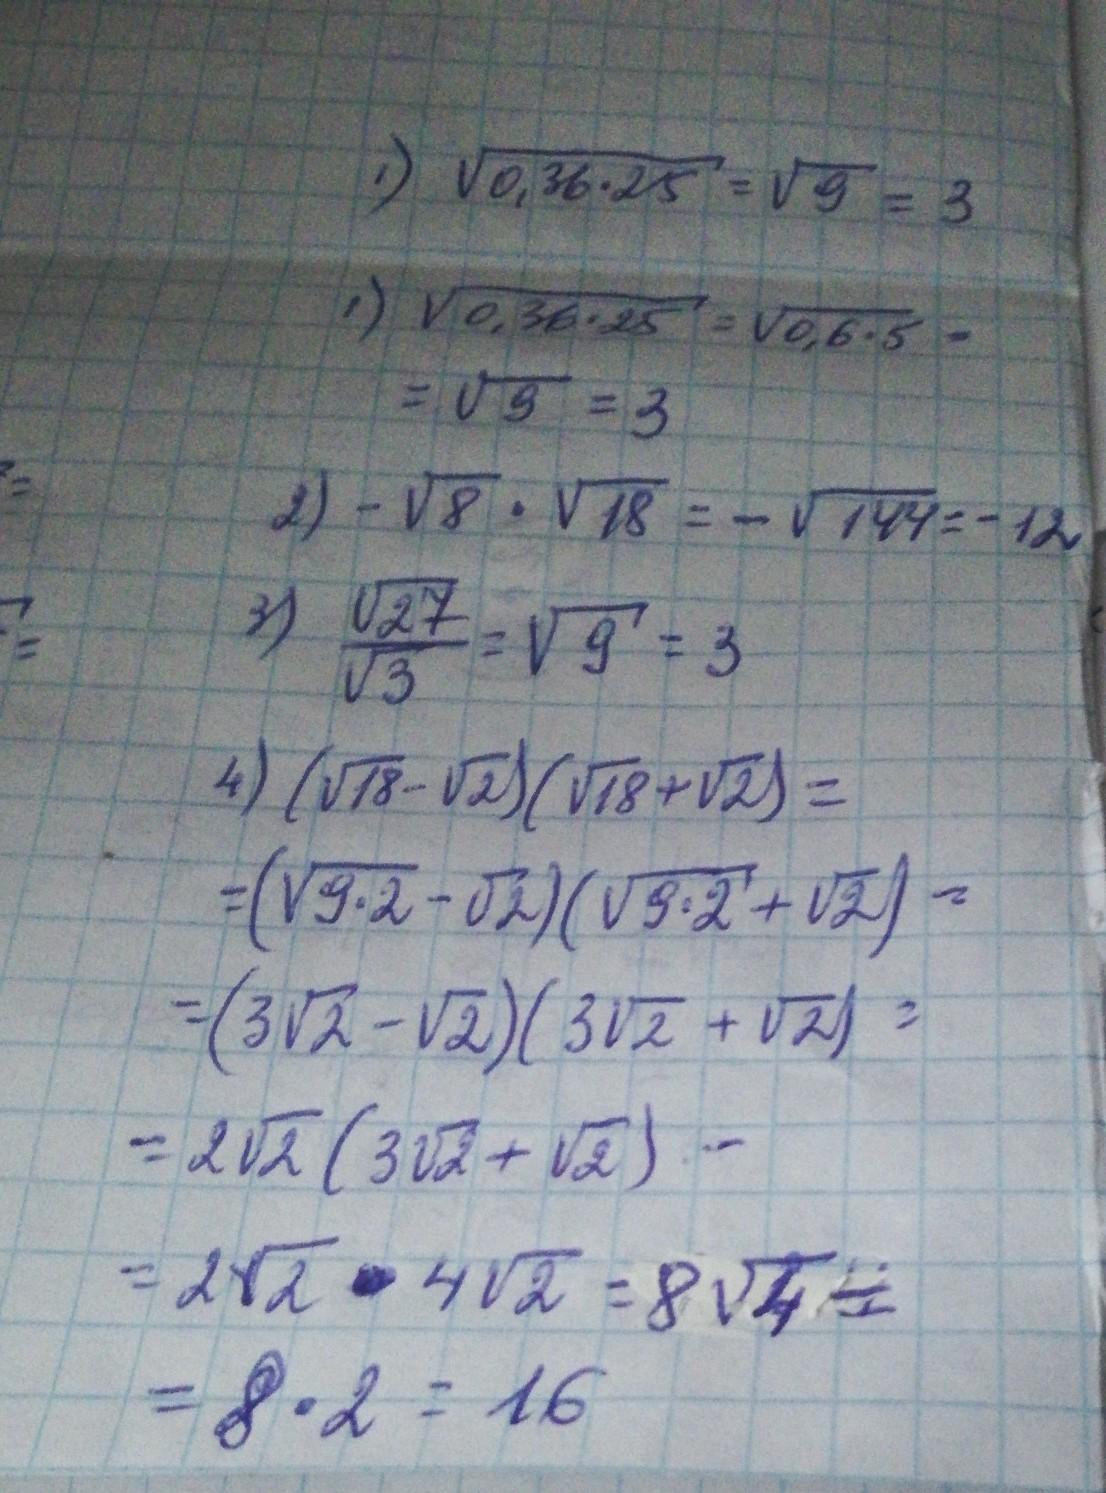 1) √0,36·25 = √9 = 3
1) √0,36·25 = √0,6·5 =
= √9 = 3
2) -√8 · √18 = -√144 = -12
3) √27/√3 = √9 = 3
4) (√18-√2)(√18+√2) =
=(√9·2 - √2)(√9·2 + √2) =
=(3√2 - √2)(3√2 + √2) =
= 2√2 (3√2 + √2) =
= 2√2 · 4√2 = 8√4 =
= 8·2 = 16